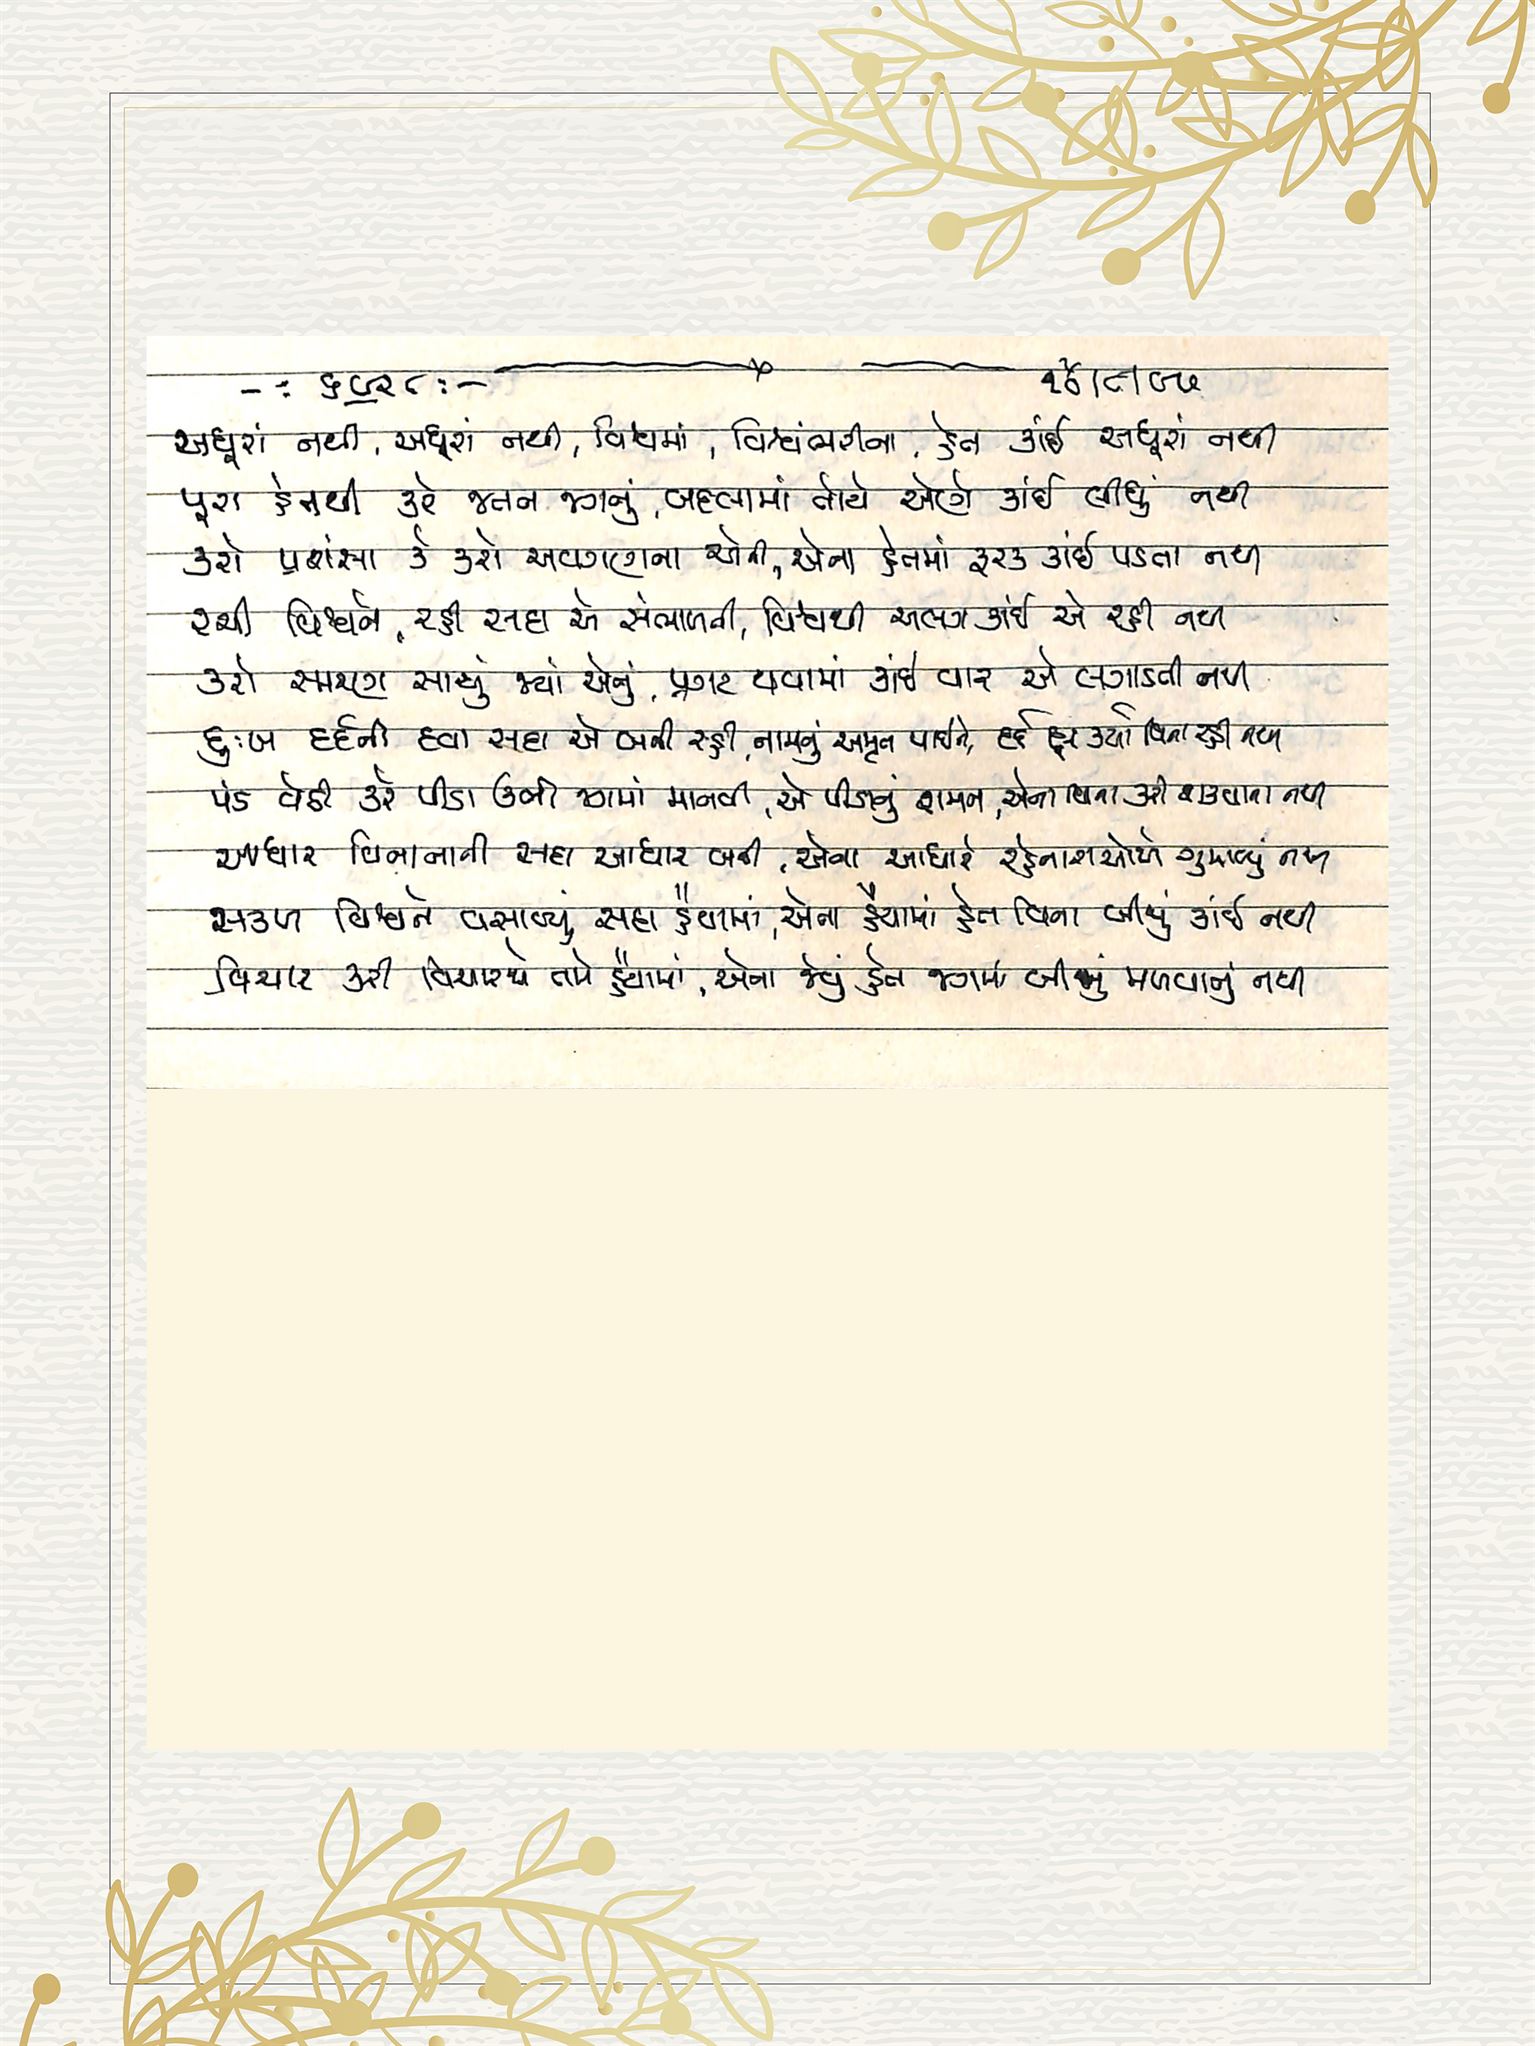 -: ૬૭૨૮ :-
અધૂરાં નથી, અધૂરાં નથી, વિશ્વમાં, વિશ્વંભરીના, હેત કાંઈ અધૂરાં નથી
પૂરા હેતથી કરે જતન જગનું, બદલામાં તોયે એણે કાંઈ લીધું નથી
કરો પ્રશંસા કે કરો અવગણના એની, એના હેતમાં ફરક કાંઈ પડતા નથી
રચી વિશ્વને, રહી સદા એ સંભાળતી, વિશ્વથી અલગ કાંઈ એ રહી નથી
કરો સ્મરણ સાચું જ્યાં એનું, પ્રગટ થવામાં કાંઈ વાર એ લગાડતી નથી
દુઃખ દર્દની દવા સદા એ બની રહી, નામનું અમૃત પાઈને, દર્દ દૂર કર્યા વિના રહી નથી
પંડ વેઠી કરે પીડા ઊભી જગમાં માનવી, એ પીડાનું શમન, એના વિના કરી શકવાના નથી
આધાર વિનાનાની સદા આધાર બની, એના આધારે રહેનારાઓએ ગુમાવ્યું નથી
સકળ વિશ્વને વસાવ્યું સદા હૈયામાં, એના હૈયામાં હેત વિના બીજું કાંઈ નથી
વિચાર કરી વિચારજો તમે હૈયામાં, એના જેવું હેત જગમાં બીજું મળવાનું નથી